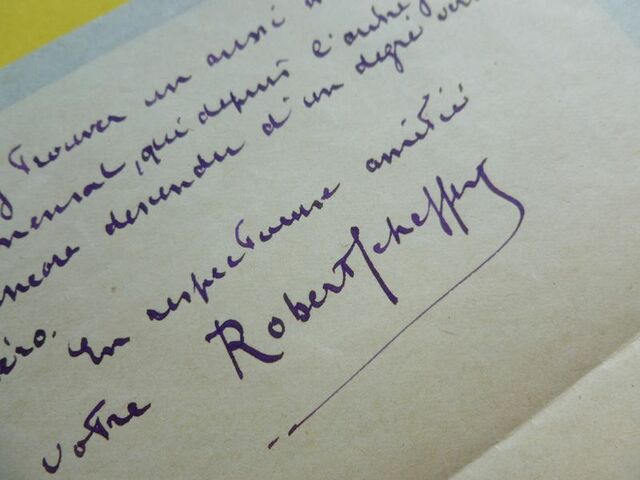 trouver un aussi
mensal, qui depuis l'autre
encore descendu d'un degré
éro.
En respectueuse amitié
votre Robert Scheffer